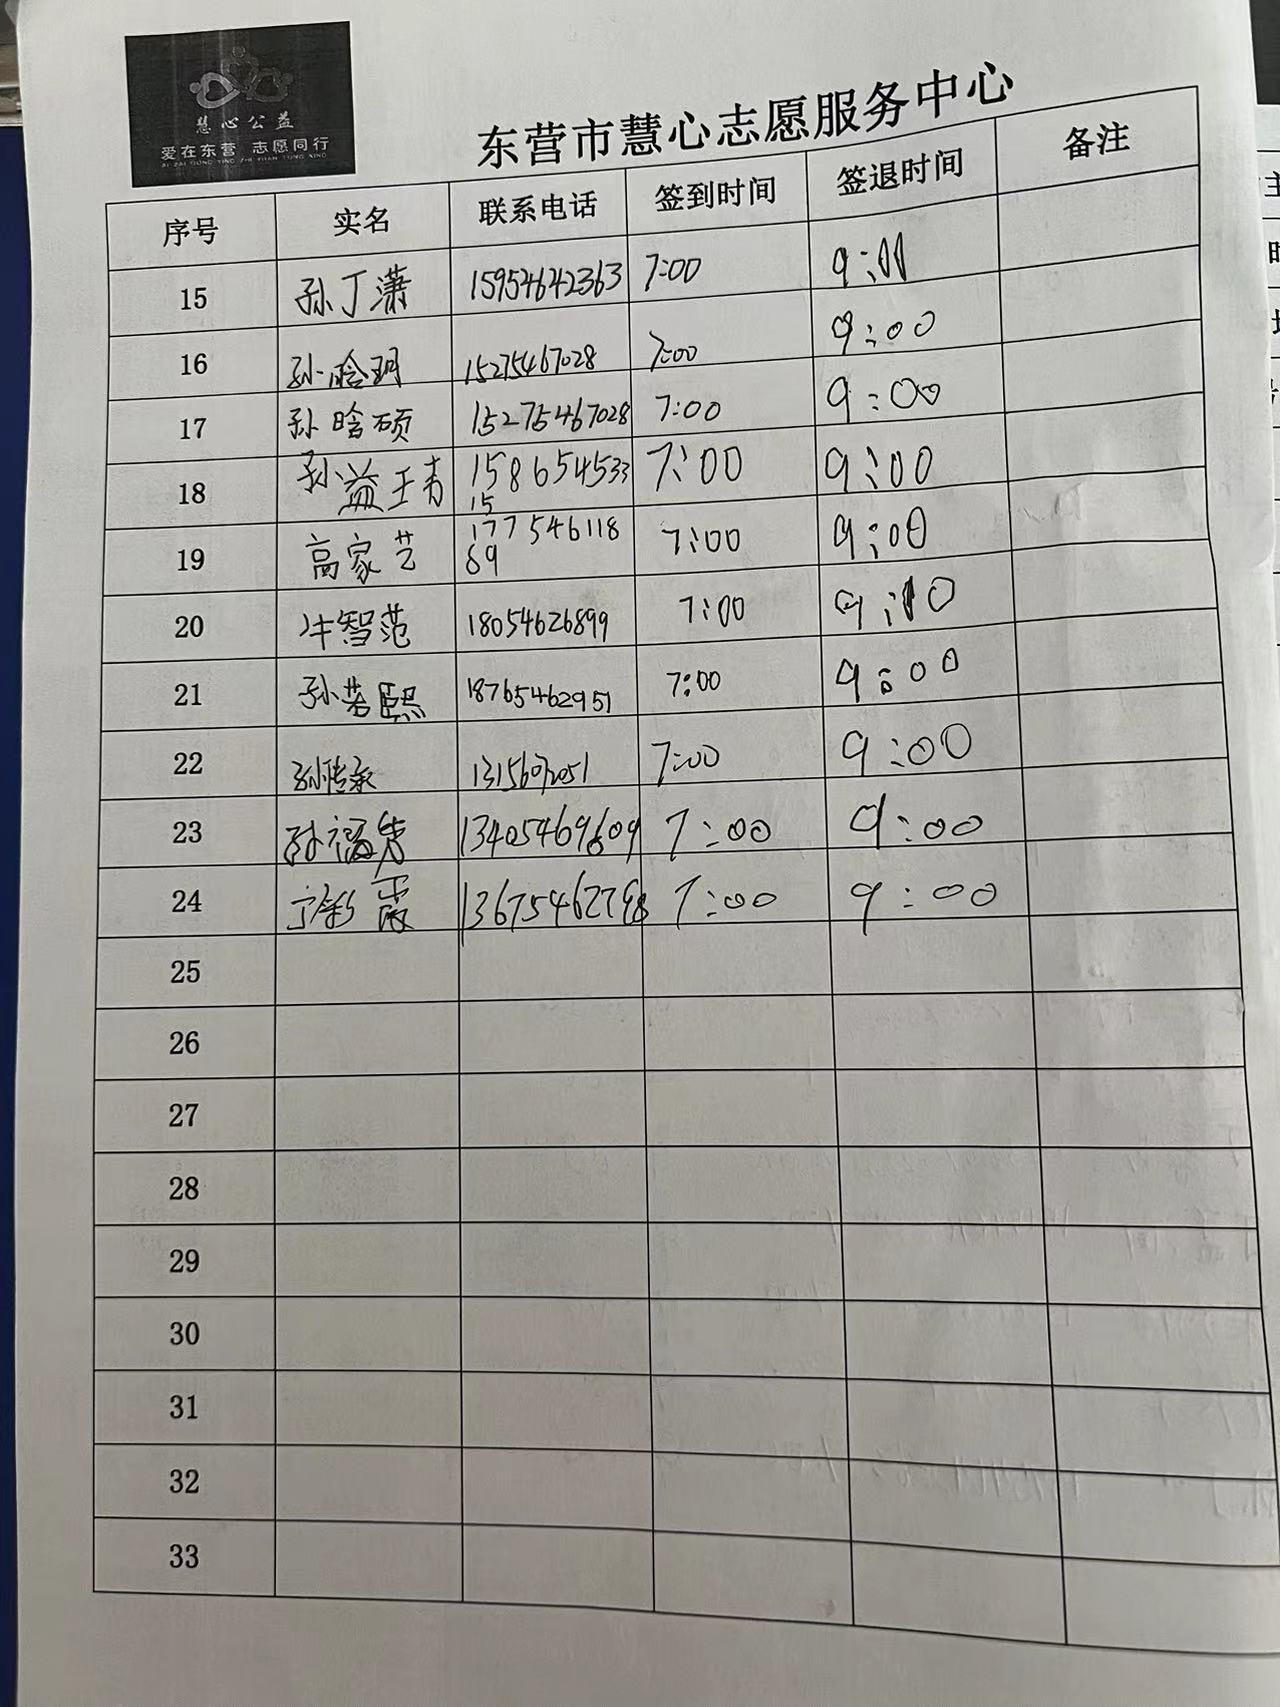 慧心公益
爱在东营 志愿同行
AI ZAI DONG YING ZHI YUAN TONG XING
东营市慧心志愿服务中心
序号 实名 联系电话 签到时间 签退时间 备注
15 孙丁潇 15954642363 7:00 9:00
16 孙晗玥 15275467028 7:00 9:00
17 孙晗硕 15275467028 7:00 9:00
18 孙益王青 158654533
15 7:00 9:00
19 高家艺 177546118
69 7:00 9:00
20 牛智范 18054626899 7:00 9:10
21 孙若熙 18765462951 7:00 9:00
22 孙传承 7:00 9:00
23 孙福 13405469609 7:00 9:00
24 宁彩霞 13675462798 7:00 9:00
25
26
27
28
29
30
31
32
33